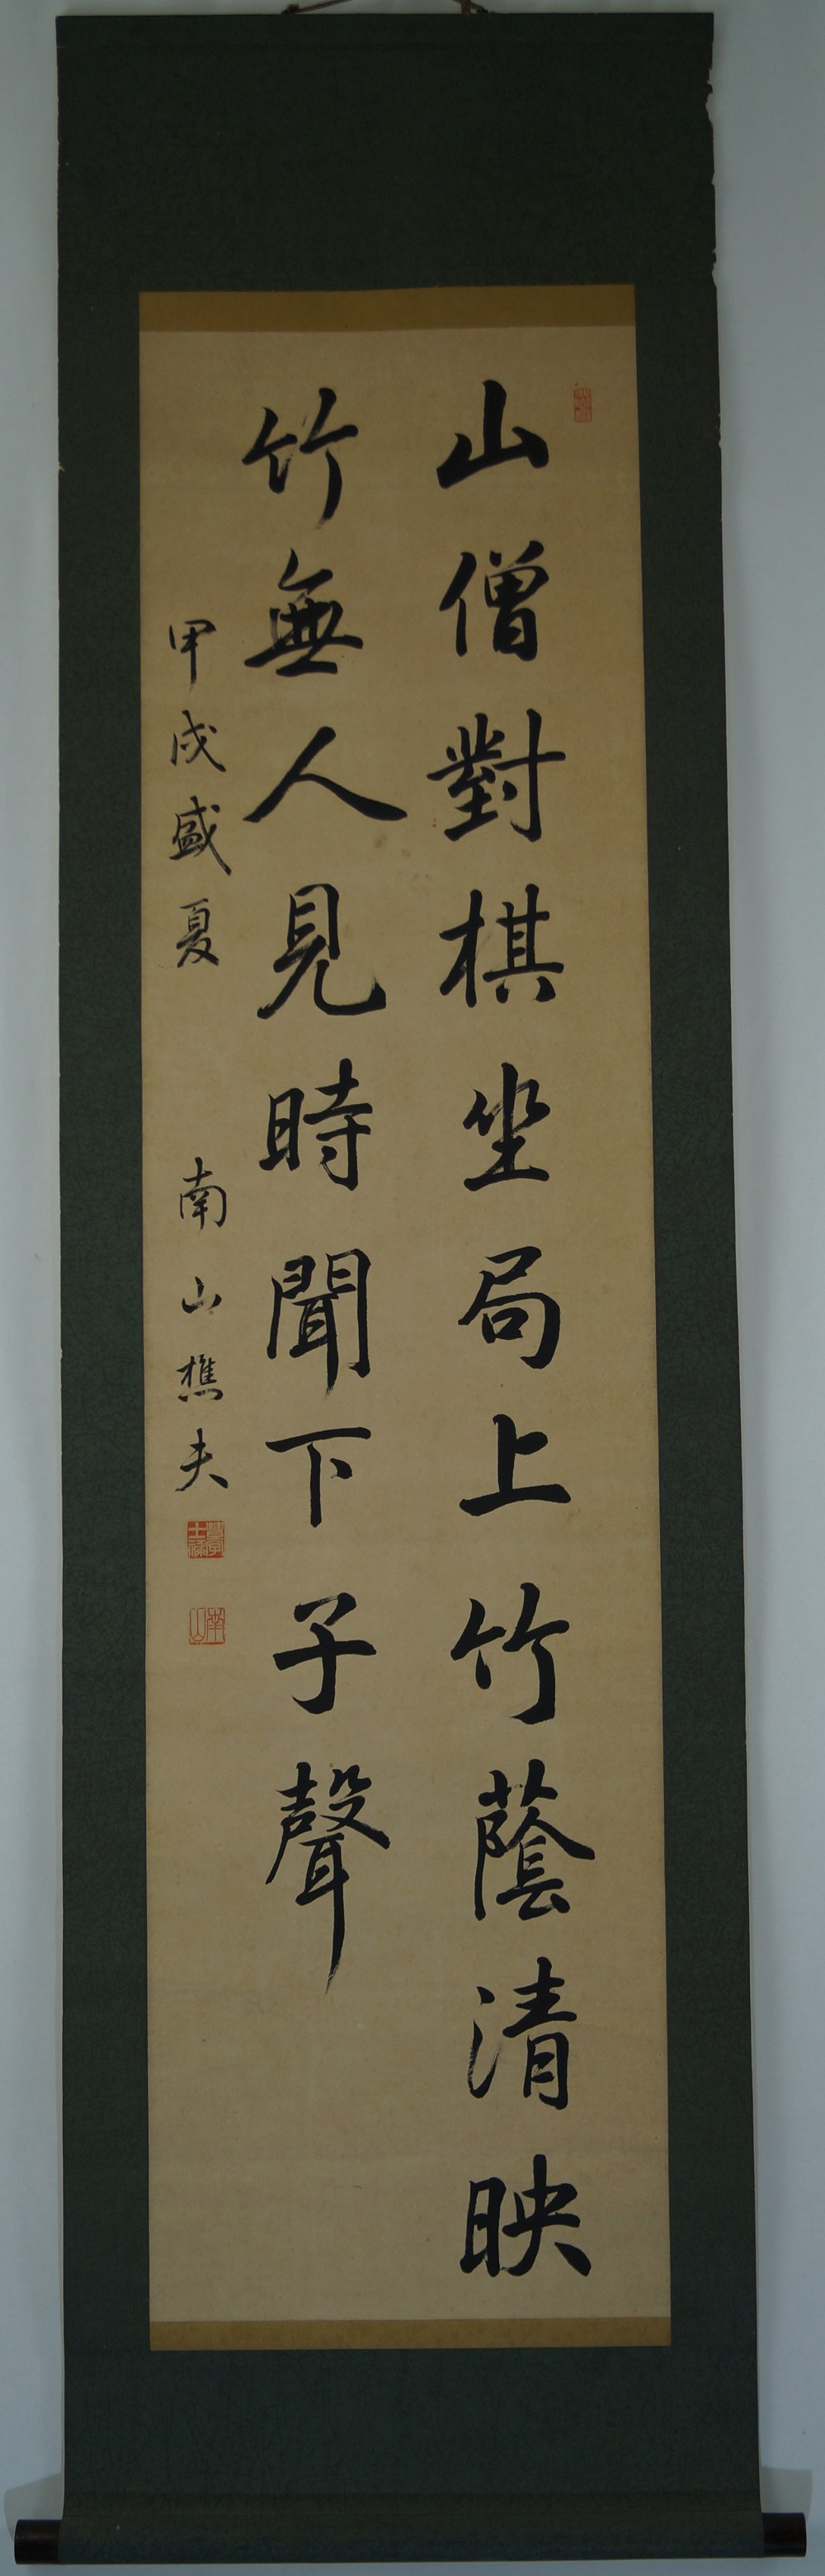 山僧對棋坐局上竹蔭清映
竹無人見時聞下子聲
甲戌盛夏 南山樵夫
南山